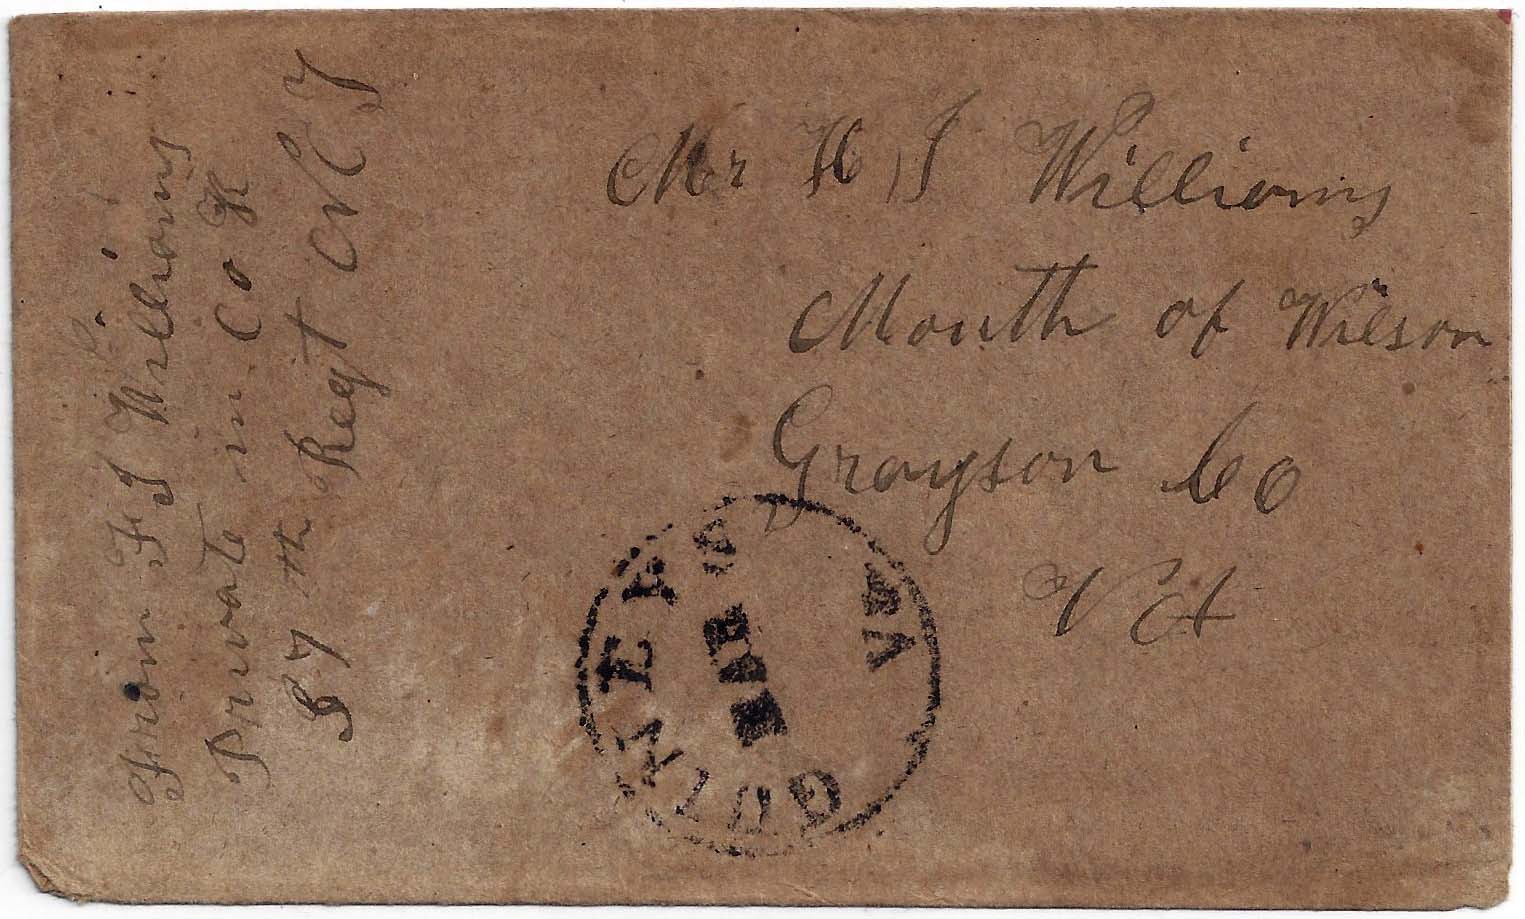 Mr H J Williams
Mouth of Wilson
Grayson Co
Va
From F J Williams
Private in Co K
37th Regt N C T
GUINEYS
VA